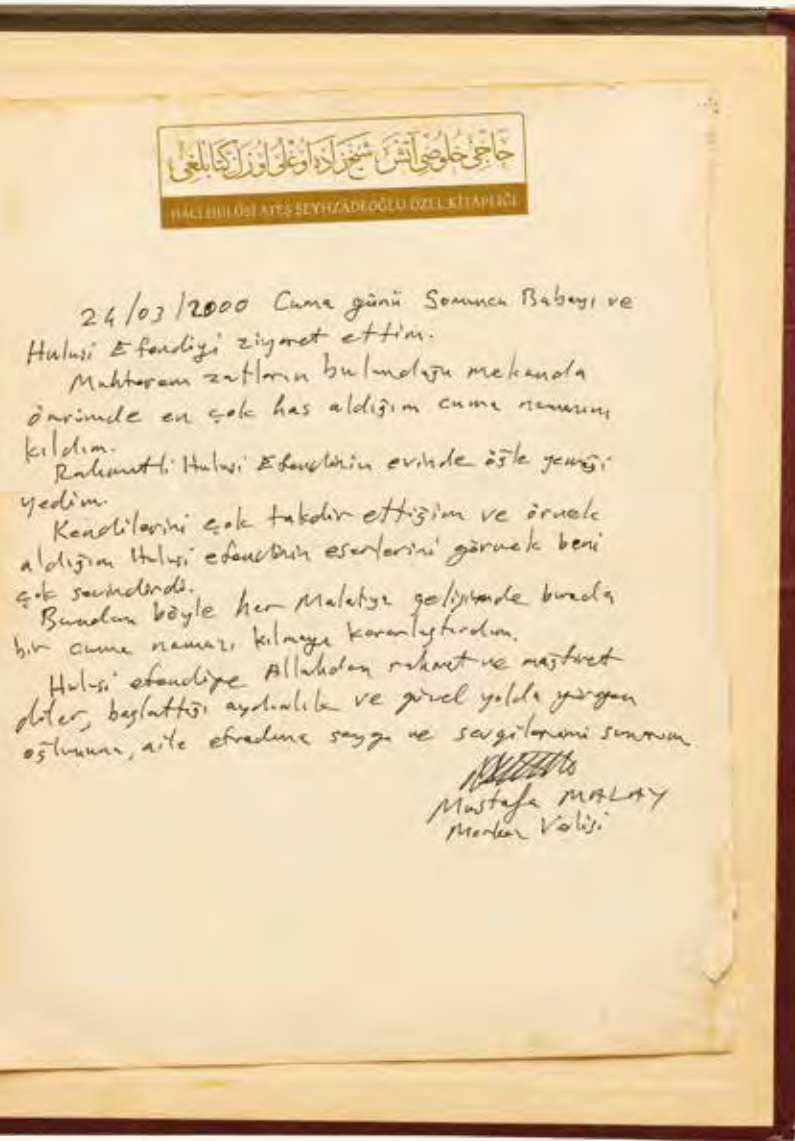 حاجی خلوصی آتش شیخزاده اوغلی اوزل کتابلغی
HACI HULÛSİ ATEŞ ŞEYHZÂDEOĞLU ÖZEL KİTAPLIĞI
24/03/2000 Cuma günü Somuncu Babayı ve
Hulusi Efendiyi ziyaret ettim.
Muhterem zatların bulunduğu mekanda
ömrümde en çok has aldığım cuma namazını
kıldım.
Rahmetli Hulusi Efendinin evinde öğle yemeği
yedim.
Kendilerini çok takdir ettiğim ve örnek
aldığım Hulusi efendinin eserlerini görmek beni
çok sevindirdi.
Bundan böyle her Malatya gelişimde burada
bir cuma namazı kılmayı kararlaştırdım.
Hulusi efendiye Allahdan rahmet ve mağfiret
diler, başlattığı aydınlık ve güzel yolda yürüyen
oğlununa, aile efradına saygı ve sevgilerimi sunarım
Mustafa MALAY
Merkez Valisi